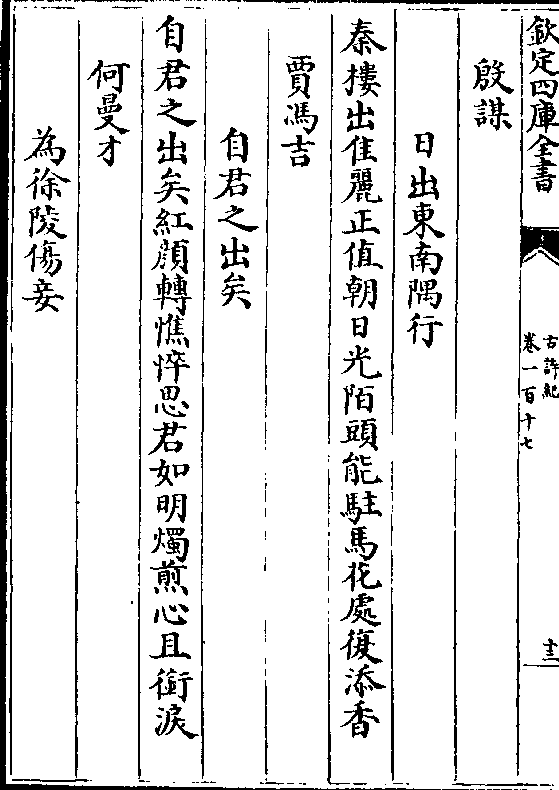 欽定四庫全書
古詩紀
卷一百十七
十三
殷謀
日出東南隅行
秦樓出佳麗正值朝日光陌頭能駐馬花處復添香
賈馮吉
自君之出矣
自君之出矣紅顔轉憔悴思君如明燭煎心且銜淚
何曼才
為徐陵傷妾